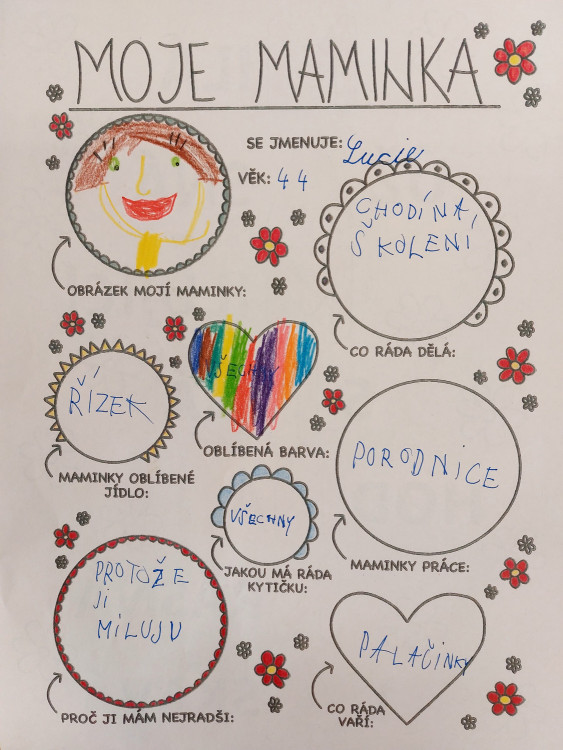 MOJE MAMINKA
SE JMENUJE: Lucie
VĚK: 44
OBRÁZEK MOJÍ MAMINKY:
CHODÍ NA
ŠKOLENI
CO RÁDA DĚLÁ:
ŘÍZEK
MAMINKY OBLÍBENÉ
JÍDLO:
VŠECHNY
OBLÍBENÁ BARVA:
PORODNICE
MAMINKY PRÁCE:
VŠECHNY
JAKOU MÁ RÁDA
KYTIČKU:
PROTOŽE
JI
MILUJU
PROČ JI MÁM NEJRADŠI:
PALAČINKY
CO RÁDA
VAŘÍ: